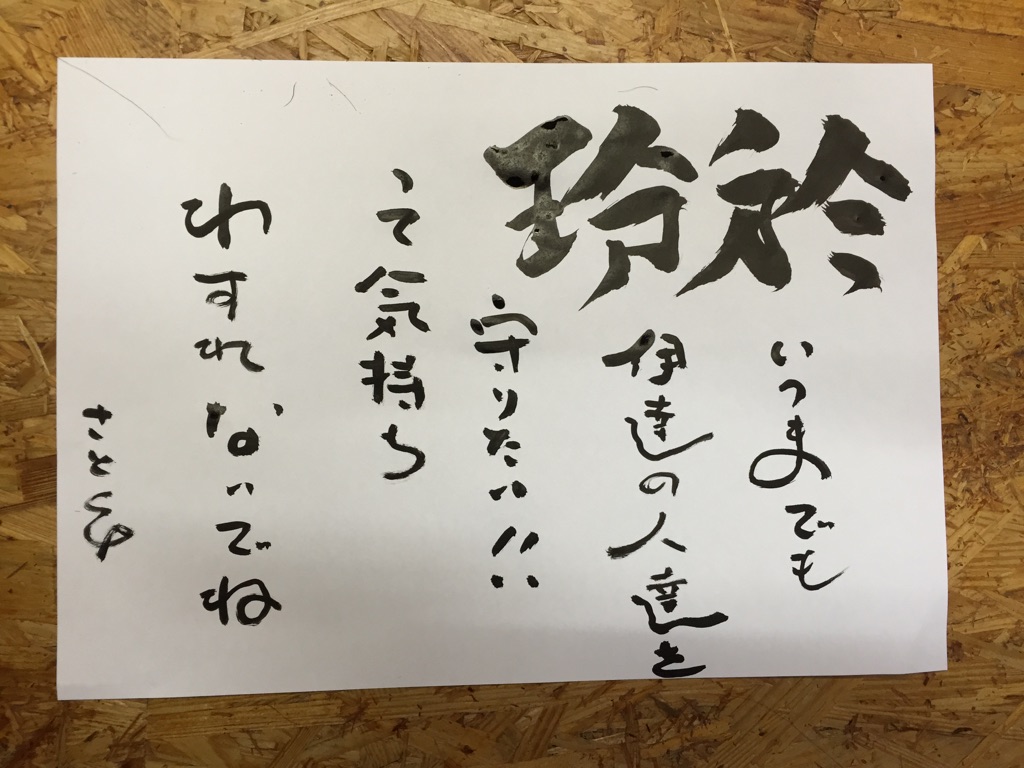 玲於
いつまでも
伊達の人達を
守りたい!!
って気持ち
わすれないでね